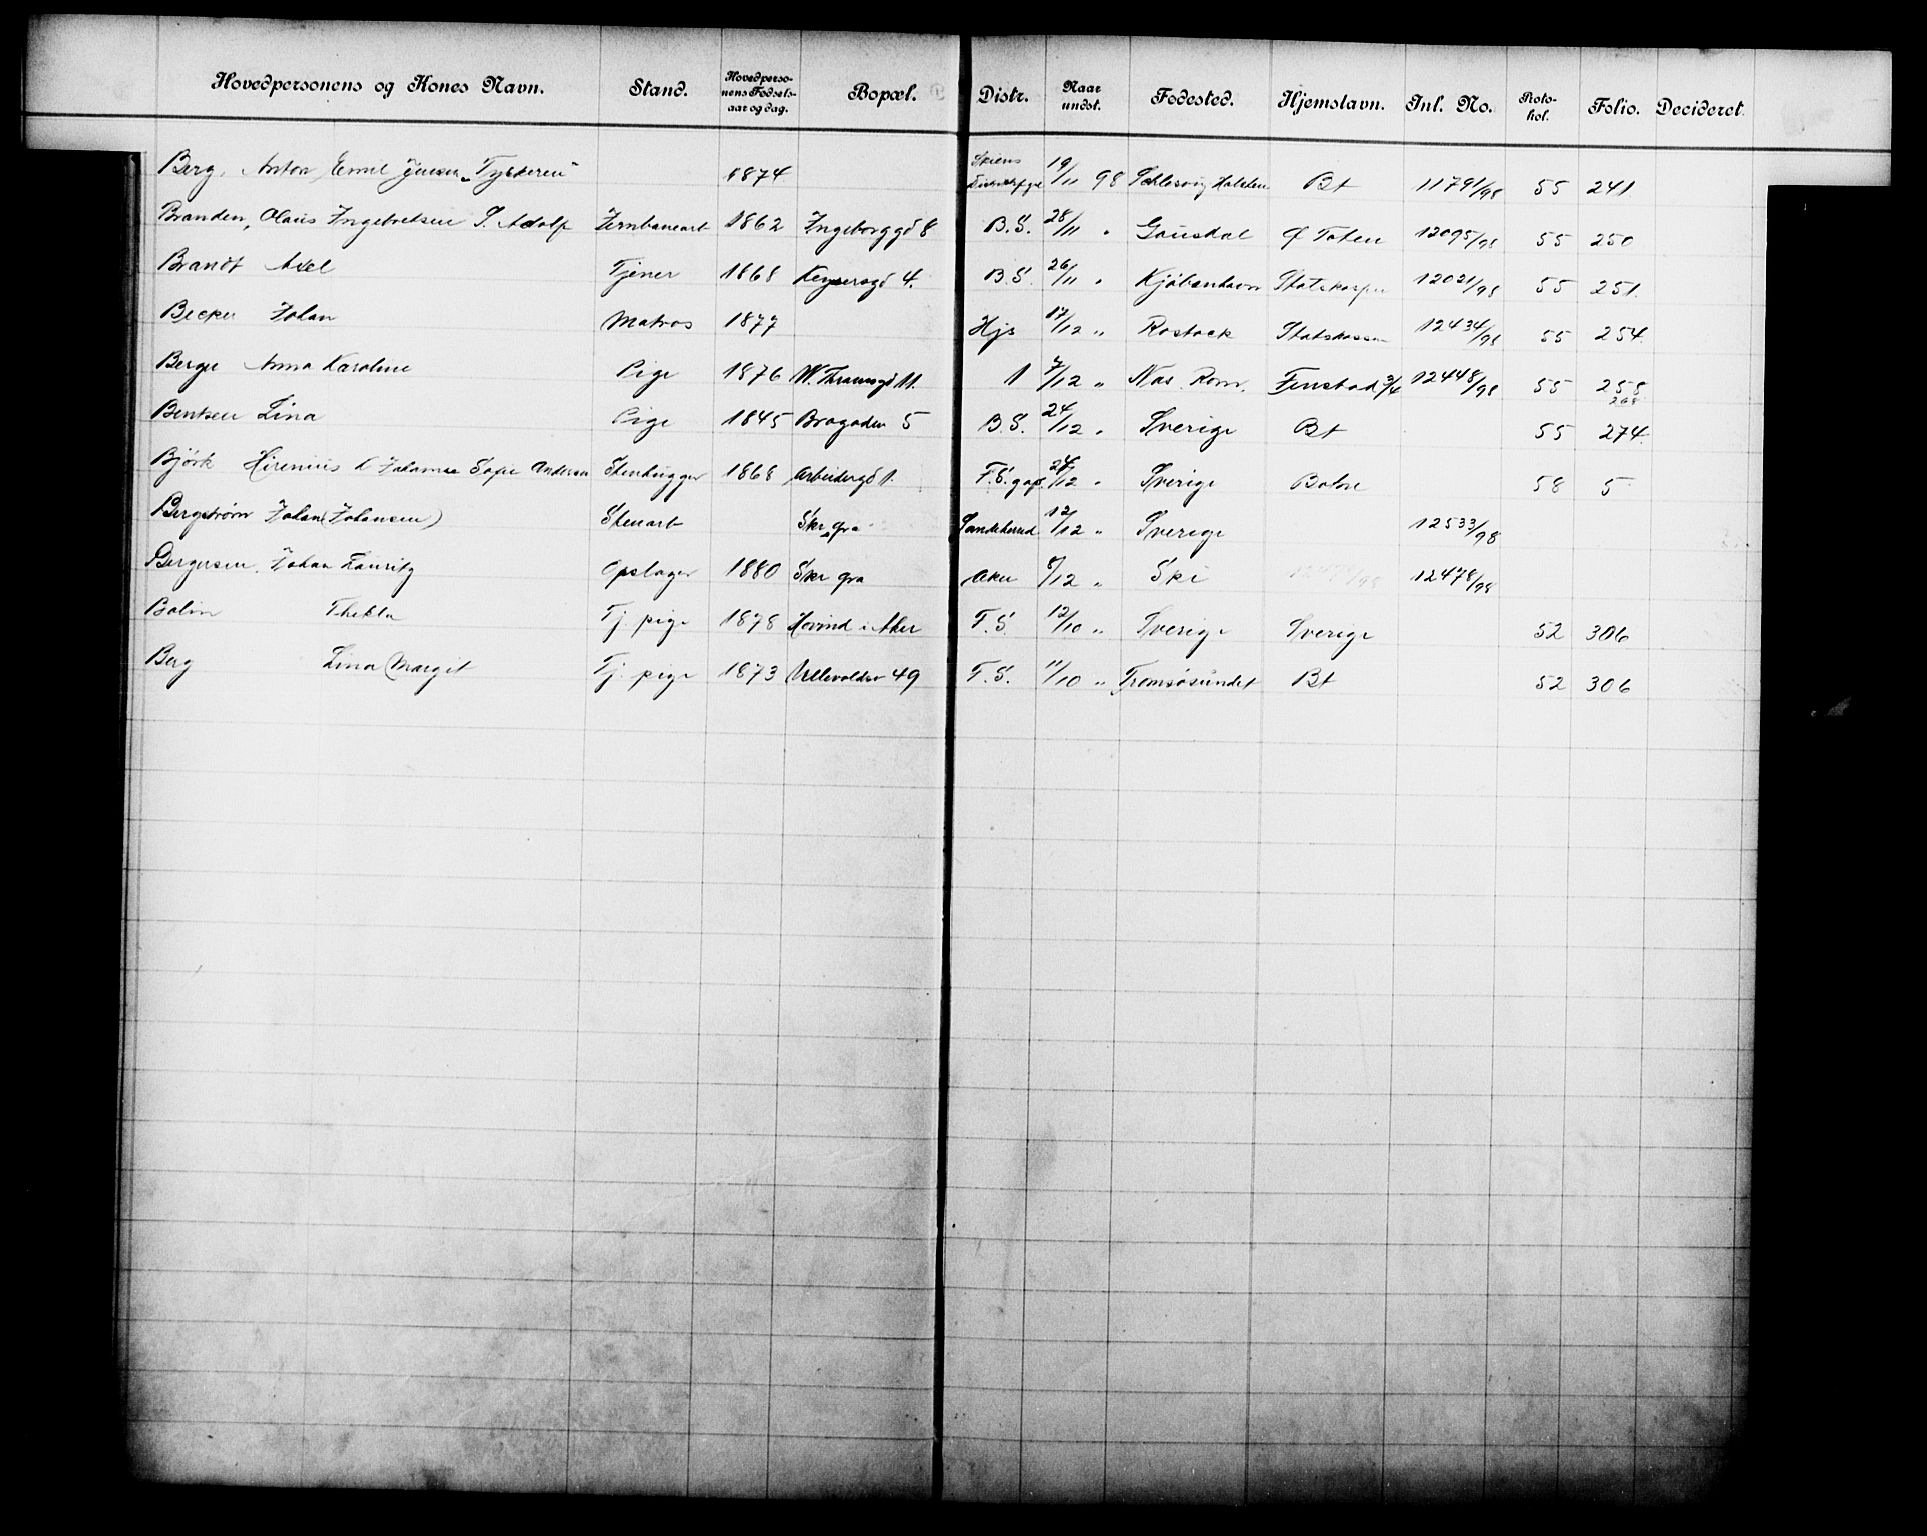 Hovedpersonens og Kones Navn. Stand. Hovedpersonens Fødselsaar og dag. Bopæl. Distr. Naar undst. Fødested. Hjemstavn. Jnl. No. Protokol. Folio. Decideret.
Berg, Anton Emil Jensen "Tyskeren" 1874 Skiens 19/11 98 Schlesvig Holsten Bt 11791/98 55 241.
Branden, Olaus Ingebretsen S. Adolf Jernbanearb 1862 Ingeborggd 8 B.S. 28/11 " Gausdal Ø Toten 12095/98 55 250
Brandt Axel Tjener 1868 Keysersgd 4. B.S. 26/11 " Kjøbenhavn Statskassen 12021/98 55 251.
Becker Johan Matros 1877 Hjs 17/12 " Rostock Statskassen 12434/98 55 254.
Berger Anna Karoline Pige 1876 W. Thranesgd 11. 1 7/12 " Nas. Rom. Fenstad 3/4 12448/98 55 258 268
Bentsen Lina Pige 1845 Brogaden 5 B.S. 24/12 " Sverige Bt 55 274.
Björk Hirenius & Johanna Sofie Andersen Stenhugger 1868 Arbeidergd 1. F.S. 24/12 " Sverige 58 5
Bergström Johan (Johansen) Stenarb Skr gra 12/12 " Sverige 12533/98
Bergersen, Johan Lauritz Opslager 1880 Skr gra Aker 8/12 " Ski 12478/98
Bolin Thekla Tj. pige 1878 Hovind i Aker F.S. 12/10 " Sverige Sverige 52 306
Berg Lina Margit Tj. pige 1873 Ullevoldsv 49 F.S. 11/10 " Tromsøsundet Bt 52 306